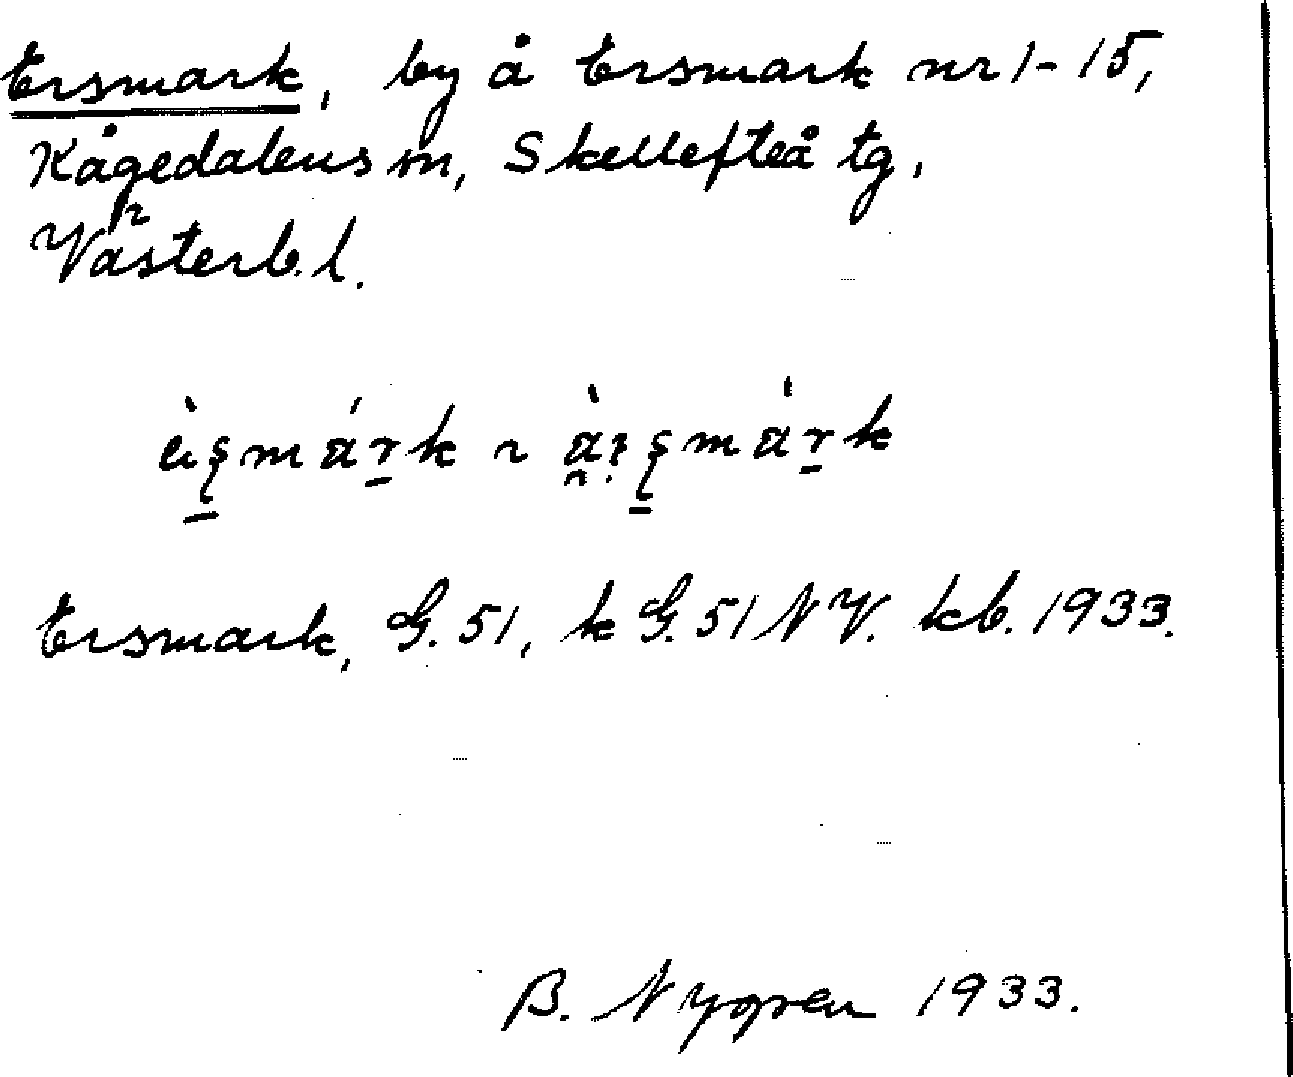 Ersmark, by å Ersmark nr 1-15,
Kågedalens m, Skellefteå tg.
Västerb. l.
Ersmark, G. 51, k G. 51 NV. kb. 1933.
B. Nygren 1933.